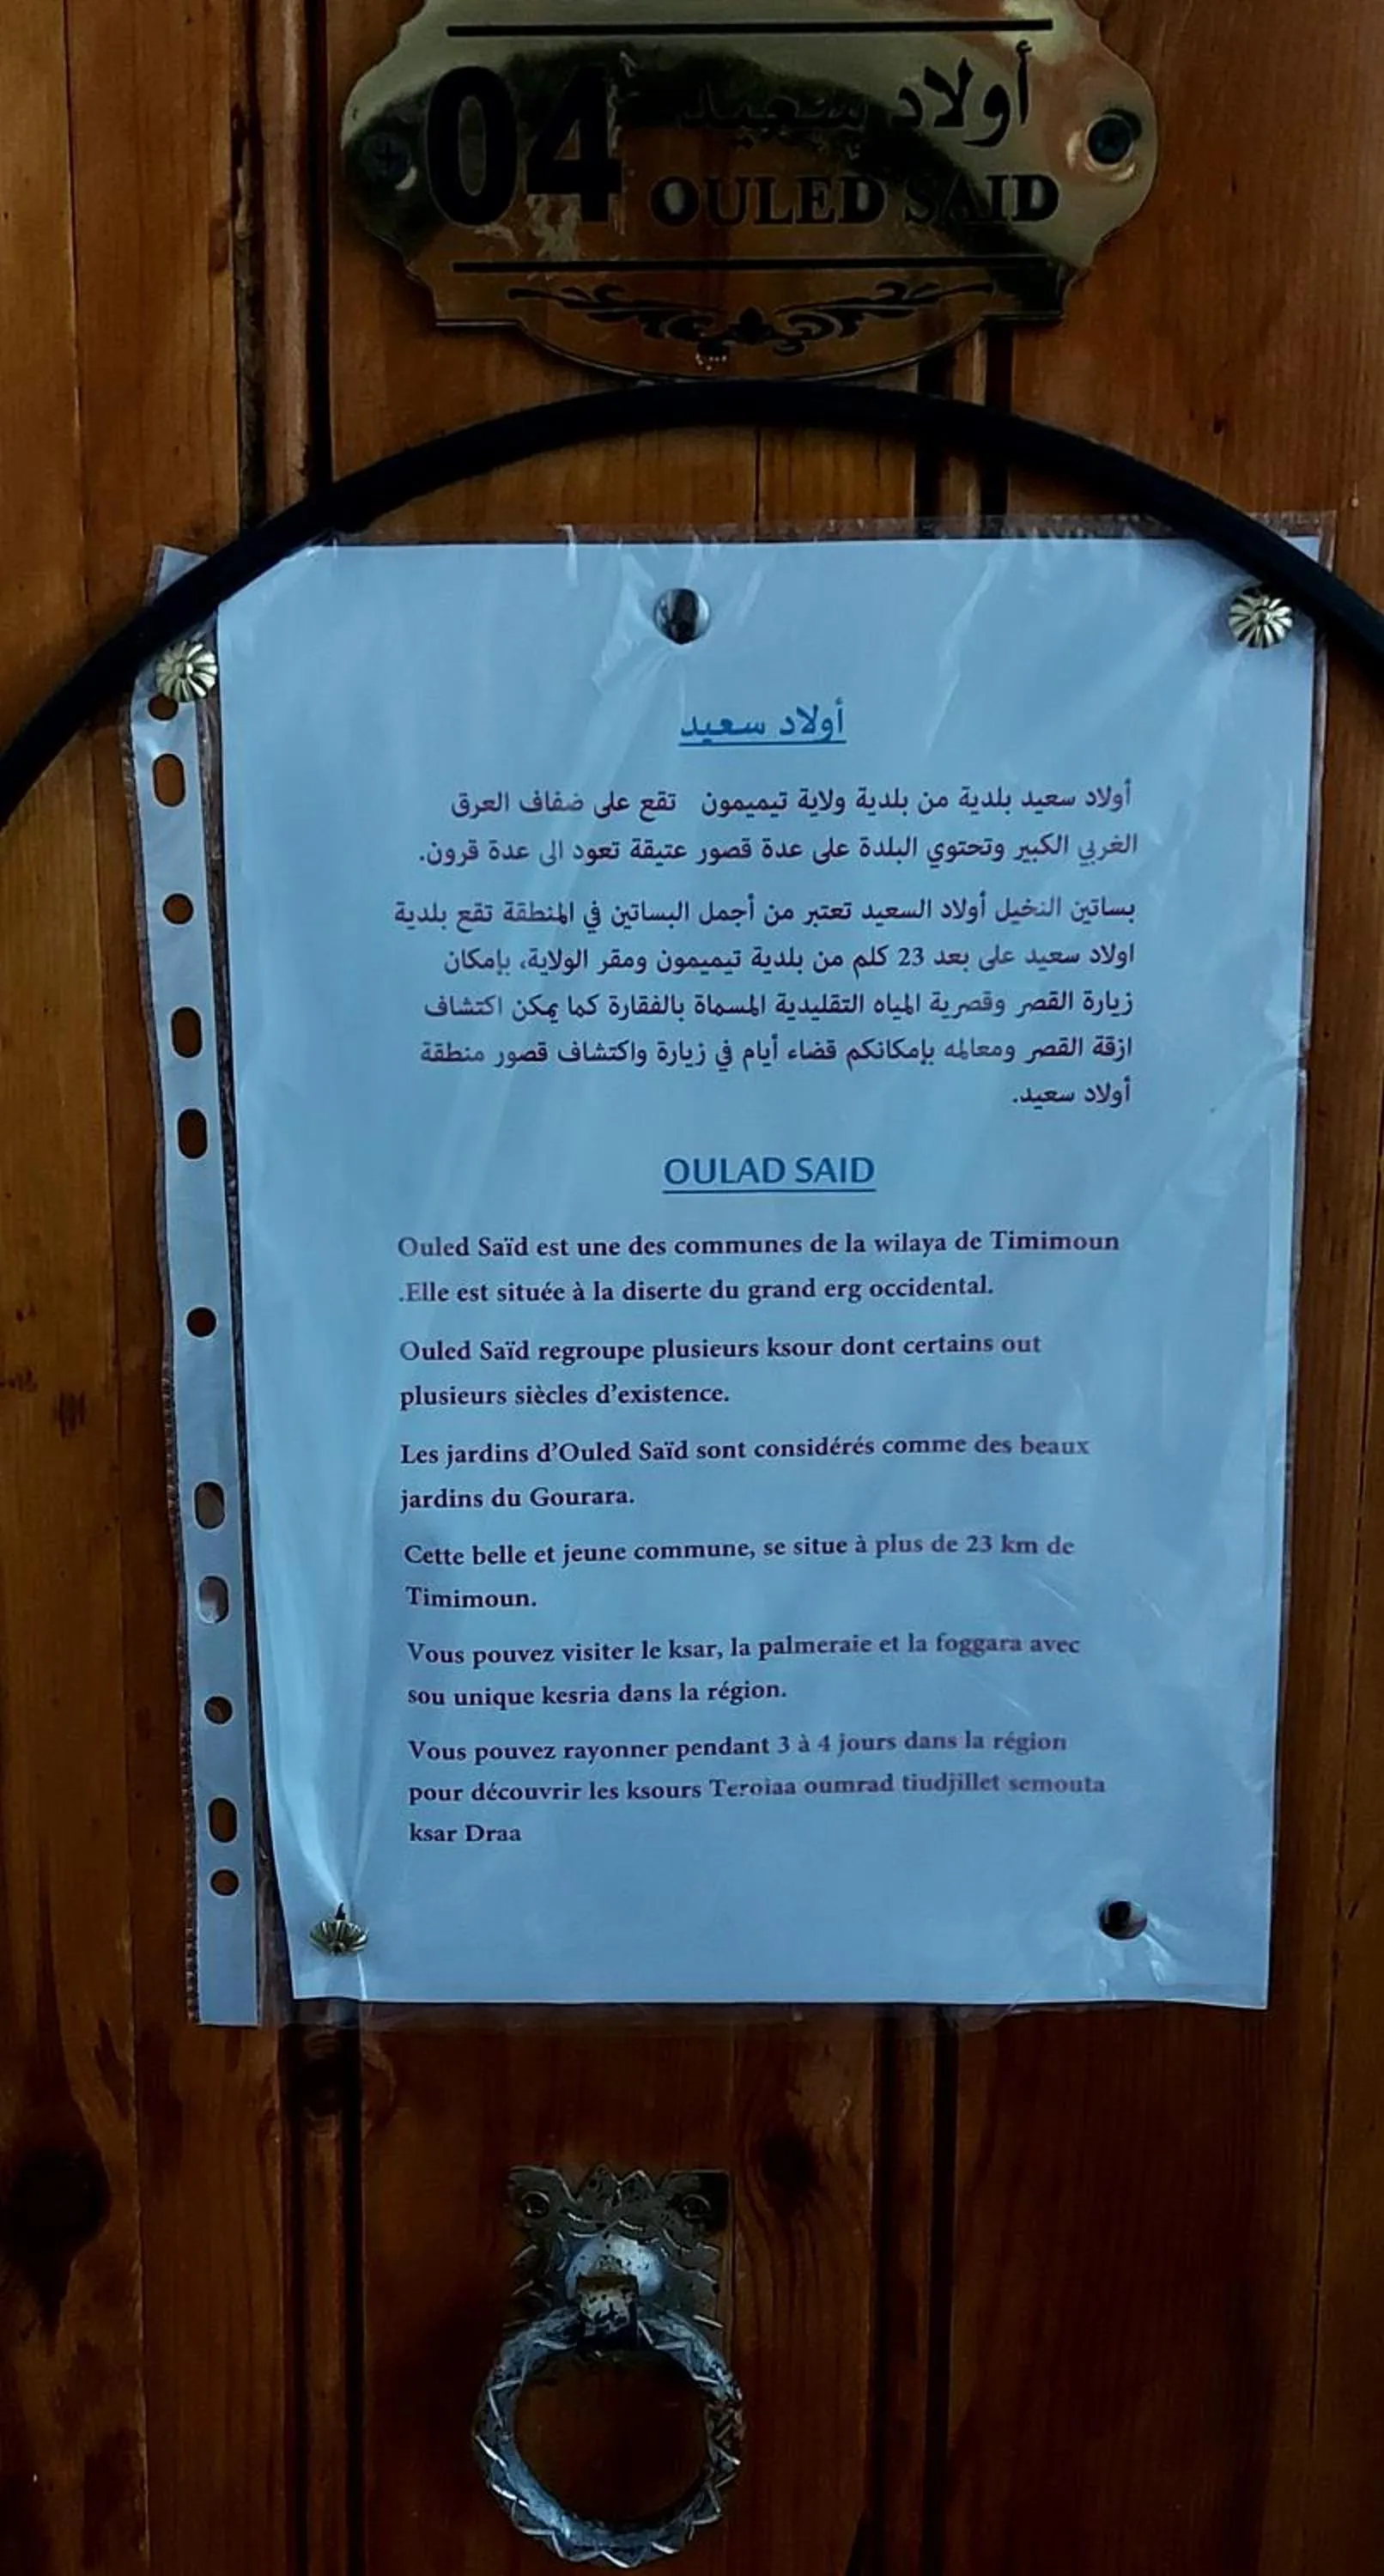 أولاد سعيد
04
OULED SAID
أولاد سعيد
أولاد سعيد بلدية من بلدية ولاية تيميمون تقع على ضفاف العرق
الغربي الكبير وتحتوي البلدة على عدة قصور عتيقة تعود الى عدة قرون.
بساتين النخيل أولاد السعيد تعتبر من أجمل البساتين في المنطقة تقع بلدية
اولاد سعيد على بعد 23 كلم من بلدية تيميمون ومقر الولاية، بإمكان
زيارة القصر وقصرية المياه التقليدية المسماة بالفقارة كما يمكن اكتشاف
ازقة القصر ومعالمه بإمكانكم قضاء أيام في زيارة واكتشاف قصور منطقة
أولاد سعيد.
OULAD SAID
Ouled Saïd est une des communes de la wilaya de Timimoun
.Elle est située à la diserte du grand erg occidental.
Ouled Saïd regroupe plusieurs ksour dont certains out
plusieurs siècles d’existence.
Les jardins d’Ouled Saïd sont considérés comme des beaux
jardins du Gourara.
Cette belle et jeune commune, se situe à plus de 23 km de
Timimoun.
Vous pouvez visiter le ksar, la palmeraie et la foggara avec
sou unique kesria dans la région.
Vous pouvez rayonner pendant 3 à 4 jours dans la région
pour découvrir les ksours Teroiaa oumrad tiudjillet semouta
ksar Draa